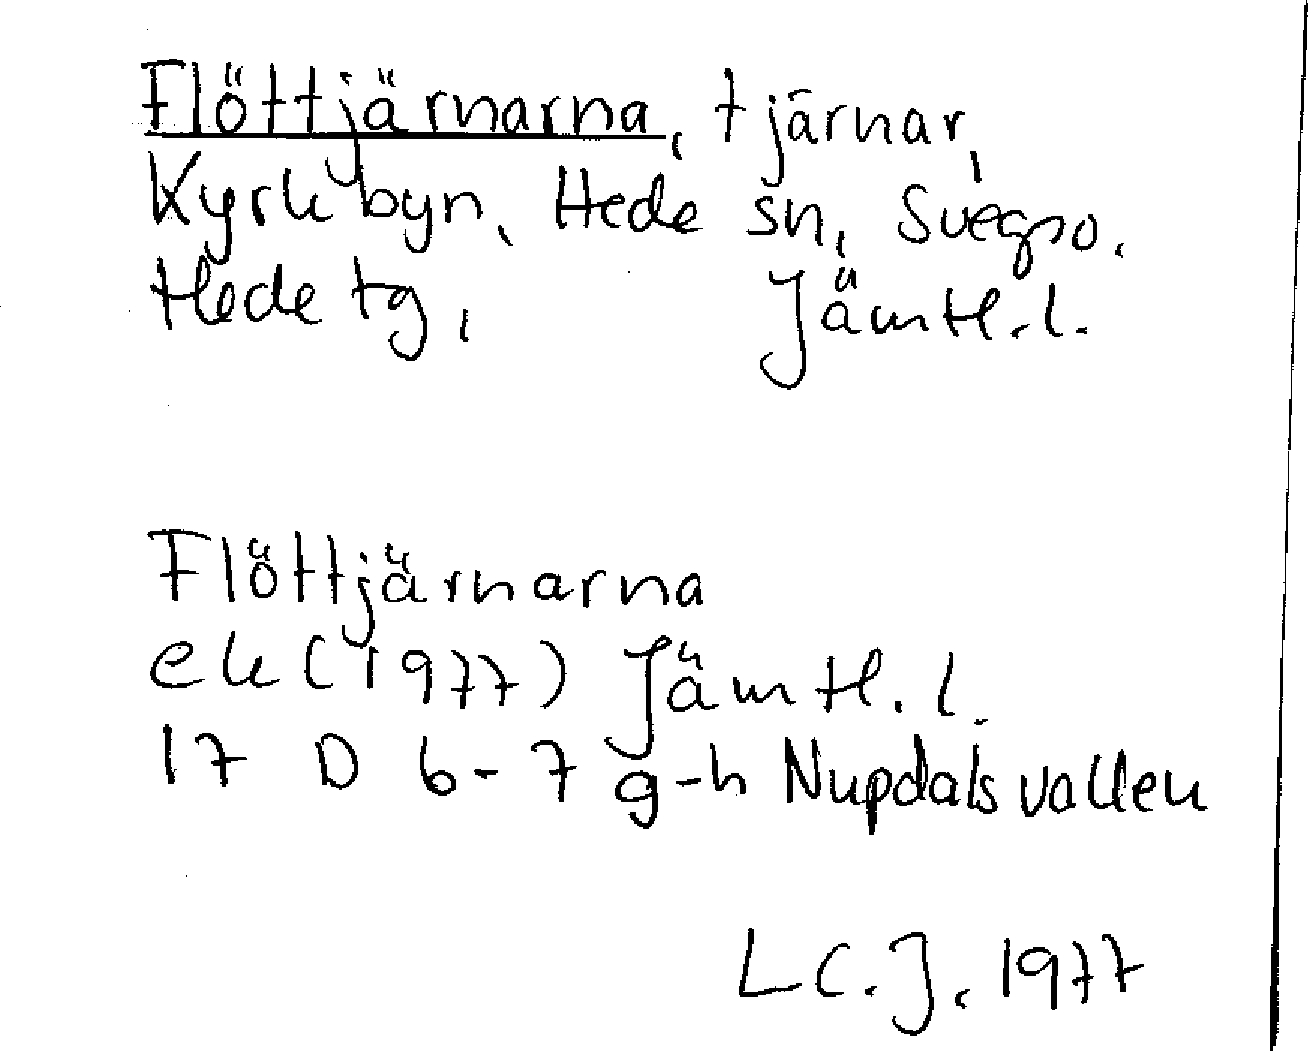 Flöttjärnarna, tjärnar,
Kyrkbyn, Hede sn, Svegso.
Hede tg, Jämtl.l.
Flöttjärnarna
ek (1977) Jämtl.l.
17 D 6-7 g-h Nupdalsvallen
LC.J. 1977